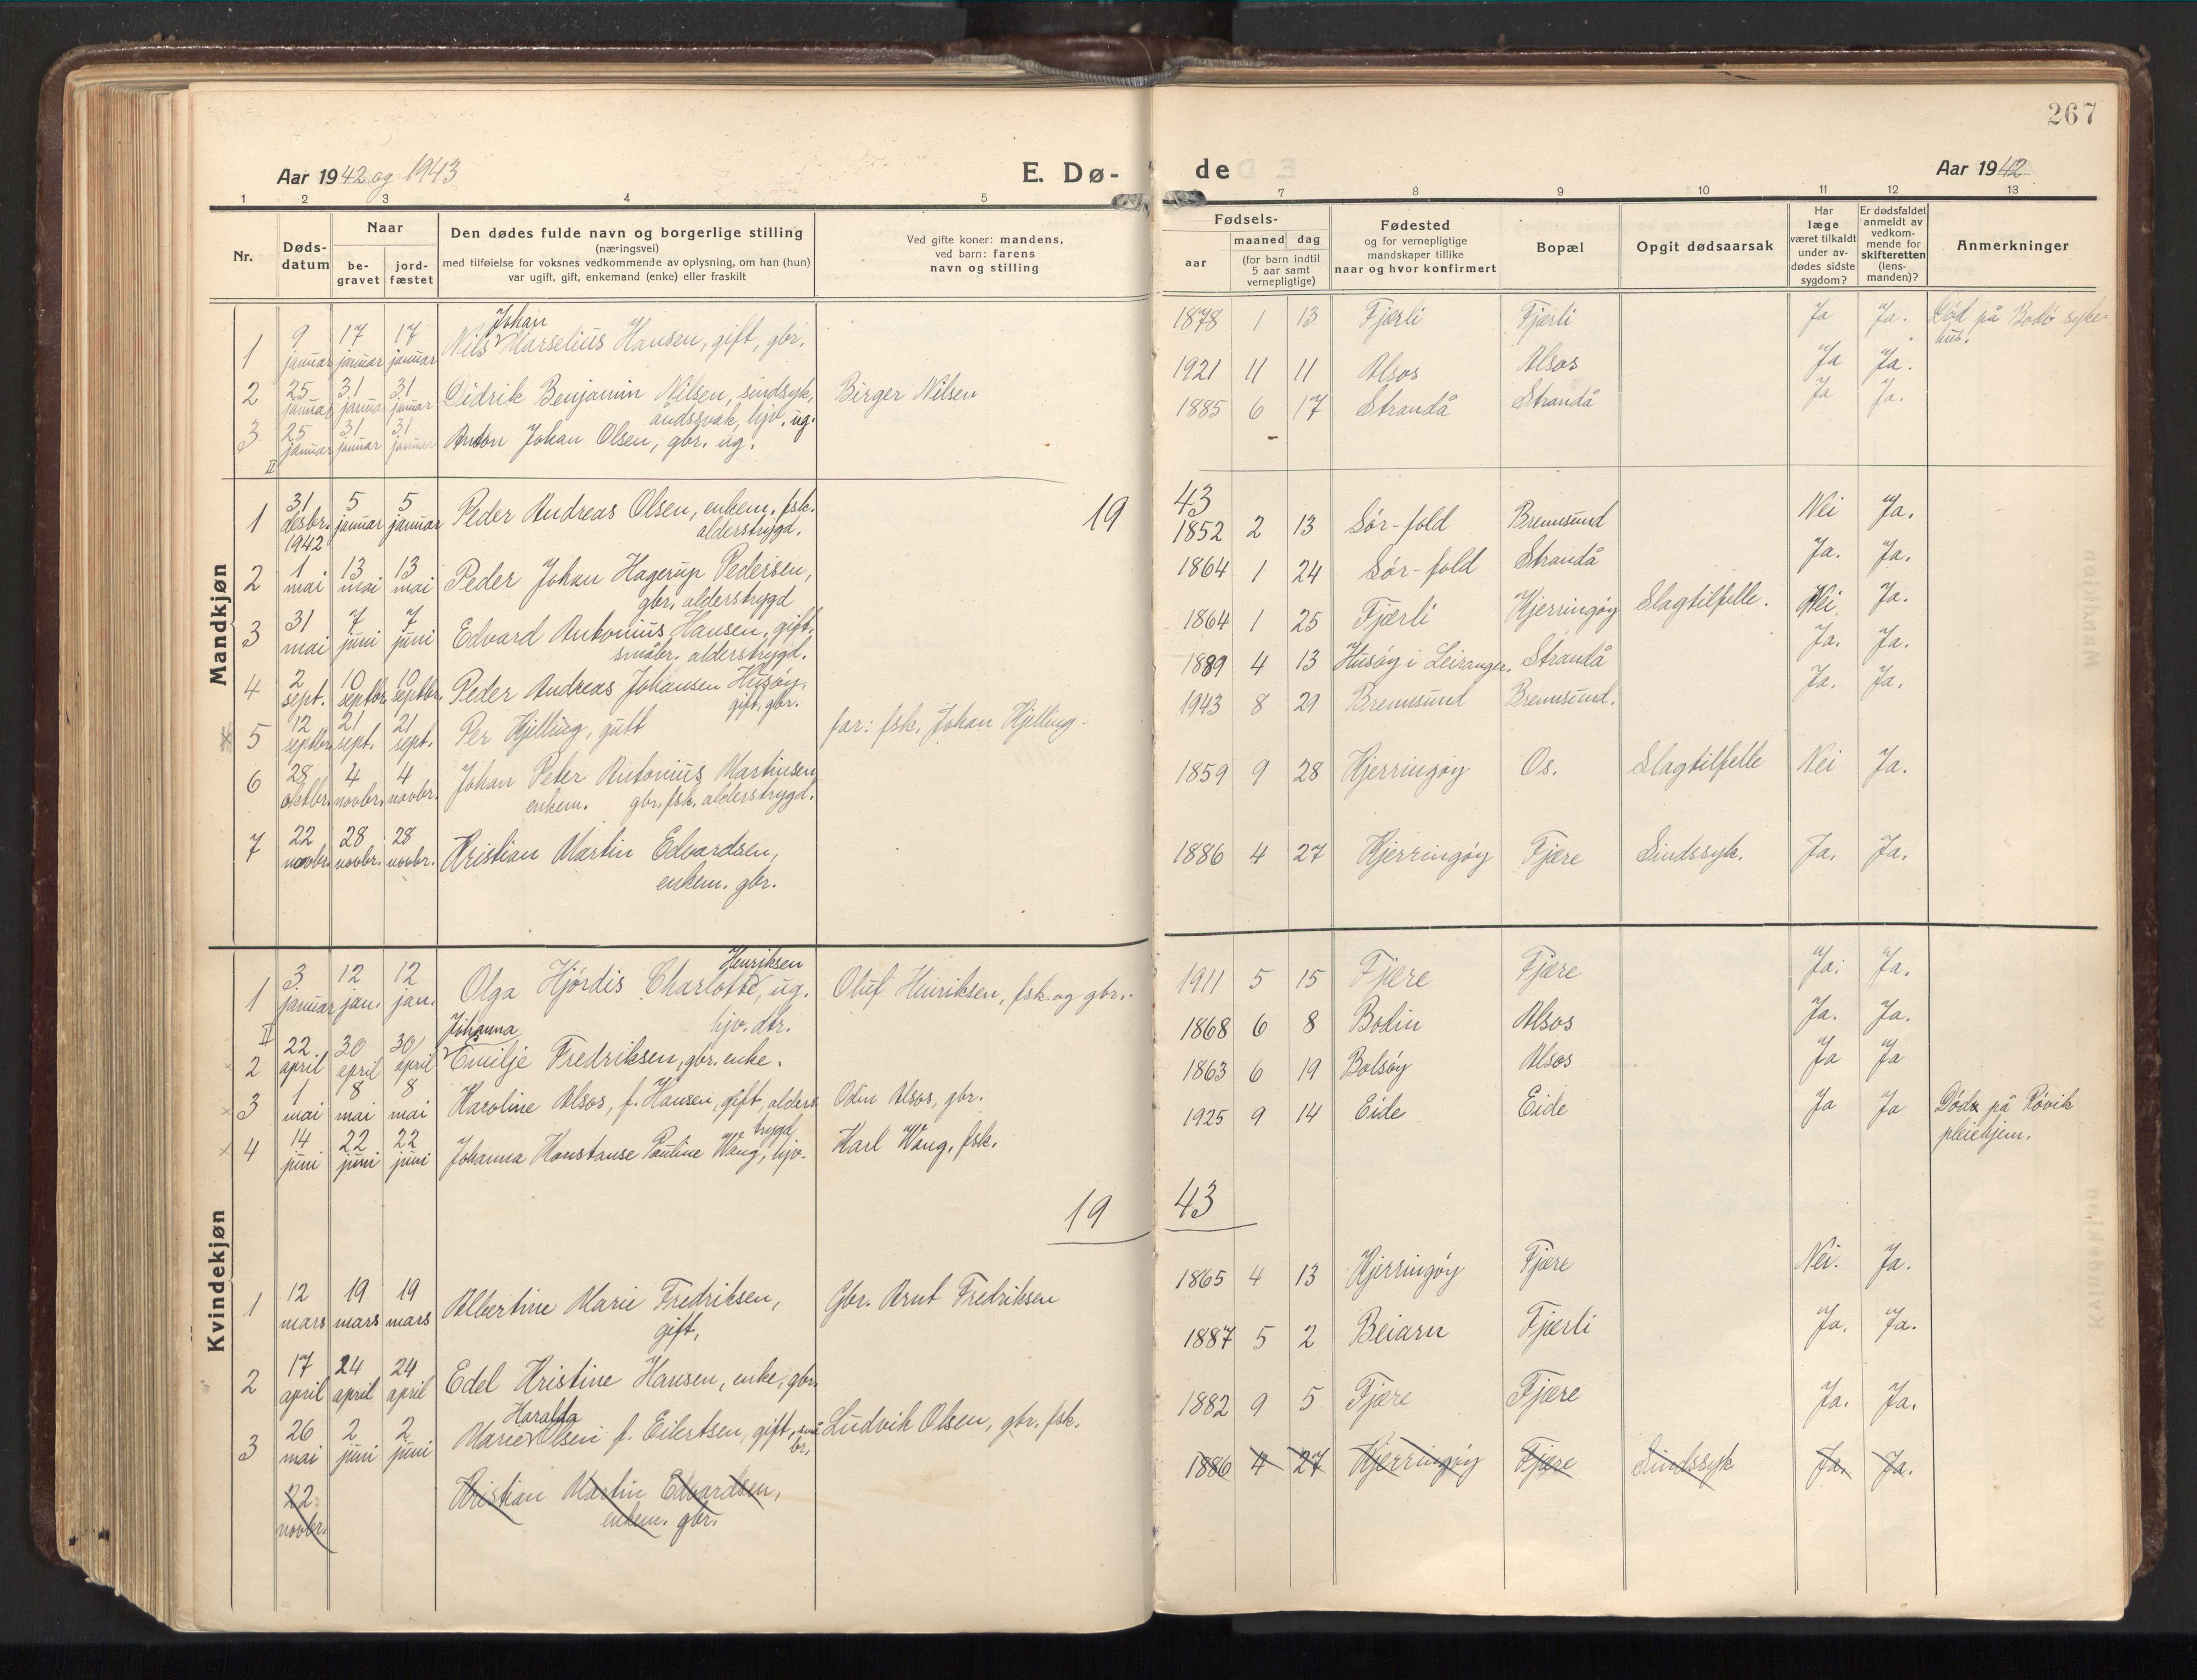 267
Aar 1942 og 1943
E. Dø-
de
Aar 1942
1 2 3 4 5
7 8 9 10 11 12 13
Nr.
Døds-
datum
Naar
be-
gravet
jord-
fæstet
Den dødes fulde navn og borgerlige stilling
(næringsvei)
med tilføielse for voksnes vedkommende av oplysning, om han (hun)
var ugift, gift, enkemand (enke) eller fraskilt
Ved gifte koner: mandens,
ved barn: farens
navn og stilling
Fødsels-
aar
maaned dag
(for barn indtil
5 aar samt
vernepligtige)
Fødested
og for vernepligtige
mandskaper tillike
naar og hvor konfirmert
Bopæl
Opgit dødsaarsak
Har
læge
været tilkaldt
under av-
dødes sidste
sygdom?
Er dødsfaldet
anmeldt av
vedkom-
mende for
skifteretten
(lens-
manden)?
Anmerkninger
Mandkjøn
1 9 januar 17 januar 17 januar Nils Johan Marselius Hansen, gift, gbr. 1878 1 13 Fjærli Fjærli Ja Ja. Død på Bodø syke-
hus.
2 25 januar 31 januar 31 januar Didrik Benjamin Nilsen, sindsyk,
åndssvak, hjv. ug. Birger Nilsen 1921 11 11 Alsos Alsos Ja Ja.
3 25 januar 31 januar 31 januar Anton Johan Olsen, gbr. ug. 1885 6 17 Strandå Strandå Ja Ja.
II
19 43
1 31 desbr. 1942 5 januar 5 januar Peder Andreas Olsen, enkem. fsk.
alderstrygd. 1852 2 13 Sør-fold Bremsund Nei Ja.
2 1 mai 13 mai 13 mai Peder Johan Hagerup Pedersen,
gbr. alderstrygd 1864 1 24 Sør-fold Strandå Ja. Ja.
3 31 mai 7 juni 7 juni Edvard Antonius Hansen, gift,
småbr. alderstrygd. 1864 1 25 Fjærli Kjerringøy Slagtilfelle. Nei Ja.
4 2 sept. 10 septbr. 10 septbr. Peder Andreas Johansen Husøy,
gift, gbr. 1889 4 13 Husøy i Leiranger. Strandå Ja. Ja.
x 5 12 septbr. 21 sept. 21 sept. Per Kjelling, gutt far: fsk. Johan Kjelling. 1943 8 29 Bremsund Bremsund. Ja. Ja.
6 28 oktbr. 4 novbr. 4 novbr. Johan Peter Antonius Martinsen
enkem. gbr. fsk. alderstrygd. 1859 9 28 Kjerringøy Os. Slagtilfelle Nei Ja.
7 22 novbr. 28 novbr. 28 novbr. Kristian Martin Edvardsen,
enkem. gbr. 1886 4 27 Kjerringøy Fjære Sindssyk. Ja. Ja.
Kvindekjøn
1 3 januar 12 jan. 12 jan. Olga Hjørdis Charlotte Henriksen, ug.
hjv. dtr. Oluf Henriksen, fsk. og gbr. 1911 5 15 Fjære Fjære Ja. Ja.
II
x 2 22 april 30 april 30 april Johanna Emilje Fredriksen, gbr. enke. 1868 6 8 Bodin Alsos Ja. Ja.
x 3 1 mai 8 mai 8 mai Karoline Alsos, f. Hansen, gift, alders
trygd Odin Alsos, gbr. 1863 6 19 Bolsøy Alsos Ja Ja
x 4 14 juni 22 juni 22 juni Johanna Konstanse Pauline Wang, hjv. Karl Wang, fsk. 1925 9 14 Eide Eide Ja Ja Død på Røvik
pleiehjem.
19 43
1 12 mars 19 mars 19 mars Albertine Marie Fredriksen,
gift, Gbr. Arnt Fredriksen 1865 4 13 Kjerringøy Fjære Nei. Ja.
2 17 april 24 april 24 april Edel Kristine Hansen, enke, gbr. 1887 5 2 Beiarn Fjærli Ja. Ja.
3 26 mai 2 juni 2 juni Marie Haralda Olsen f. Eilertsen, gift, små
br. Ludvik Olsen, gbr. fsk. 1882 9 5 Fjære Fjære Ja. Ja.
22 novbr. Kristian Martin Edvardsen,
enkem. gbr. 1886 4 27 Kjerringøy Fjære Sindssyk Ja. Ja.